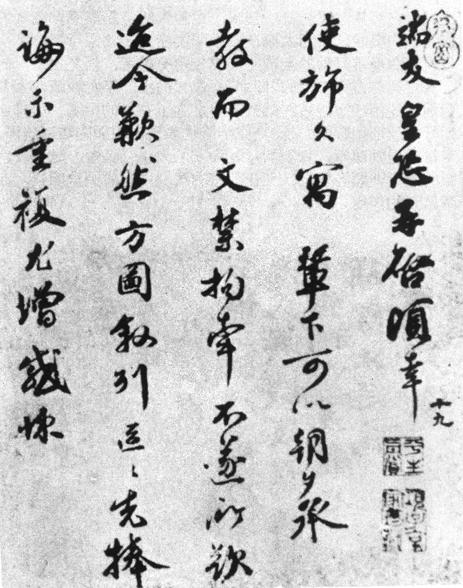 端友皇恐再啓頃幸
使旆久寓輦下可以朝夕承
教而文禁拘牽不遂所欲
迨今歉然方圖叙列區〻先捧
誨示重複尤增感悚
十九